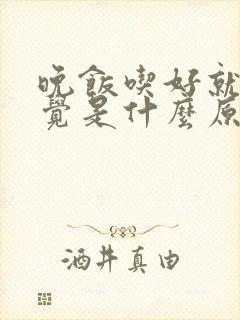 晚飯喫好就
覺是什麼原
酒井真由